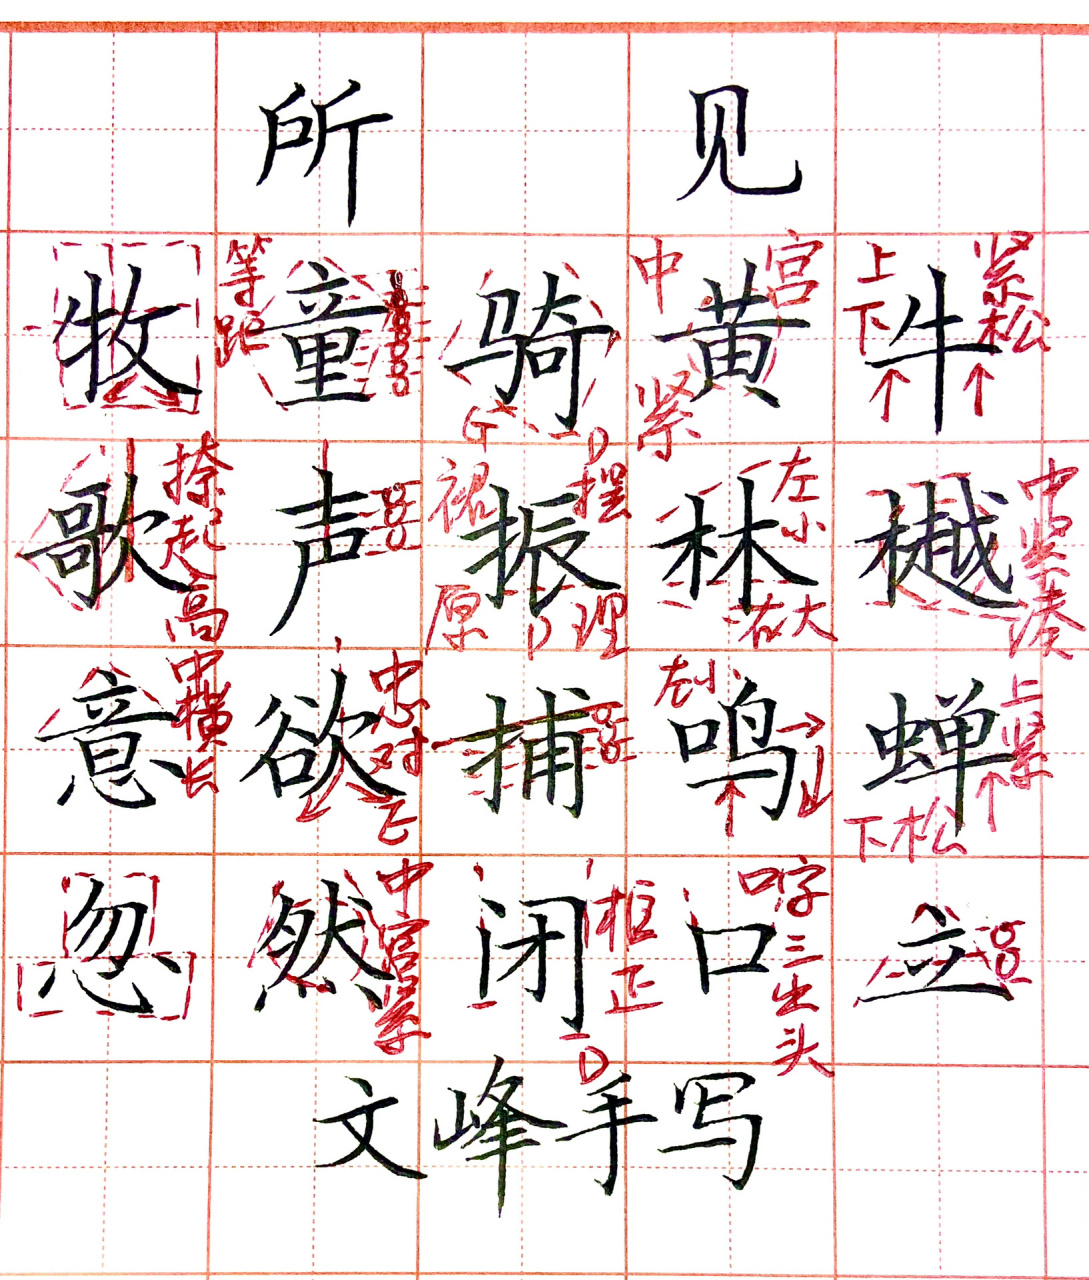 所见
等距 中宫 上紧
牧童骑黄牛
紧 下松
捺起高 裙摆 左小 中宫紧凑
歌声振林樾
原理 右大
中横长 左小 上紧
意欲捕鸣蝉
下松
中宫紧 框正 口字三出头
忽然闭口立
文峰手写